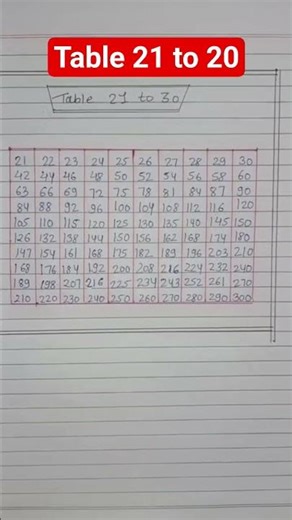 Table 21 to 20
Table 21 to 30
21 22 23 24 25 26 27 28 29 30
42 44 46 48 50 52 54 56 58 60
63 66 69 72 75 78 81 84 87 90
84 88 92 96 100 104 108 112 116 120
105 110 115 120 125 130 135 140 145 150
126 132 138 144 150 156 162 168 174 180
147 154 161 168 175 182 189 196 203 210
168 176 184 192 200 208 216 224 232 240
189 198 207 216 225 234 243 252 261 270
210 220 230 240 250 260 270 280 290 300